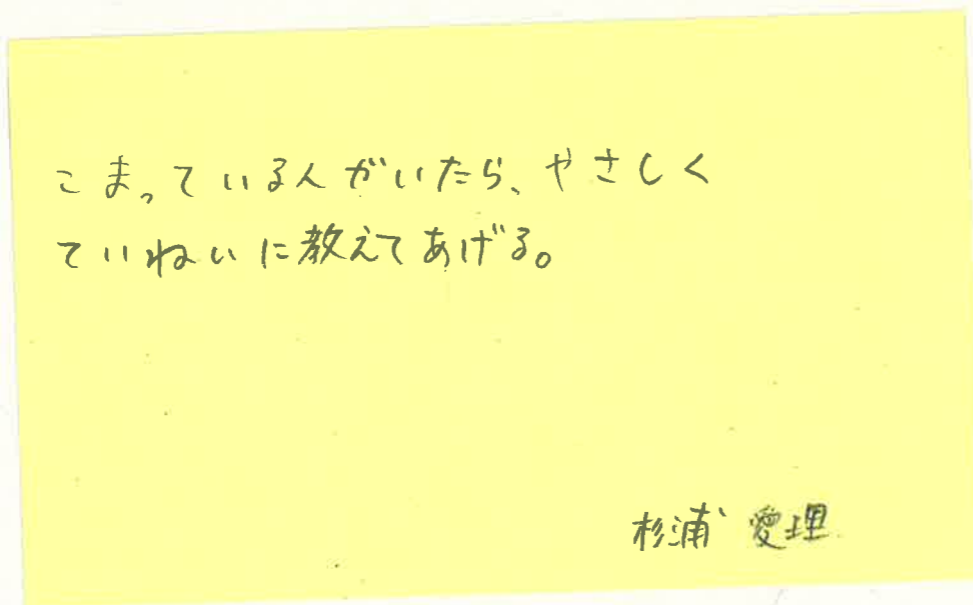 こまっている人がいたら、やさしく
ていねいに教えてあげる。
杉浦 愛理